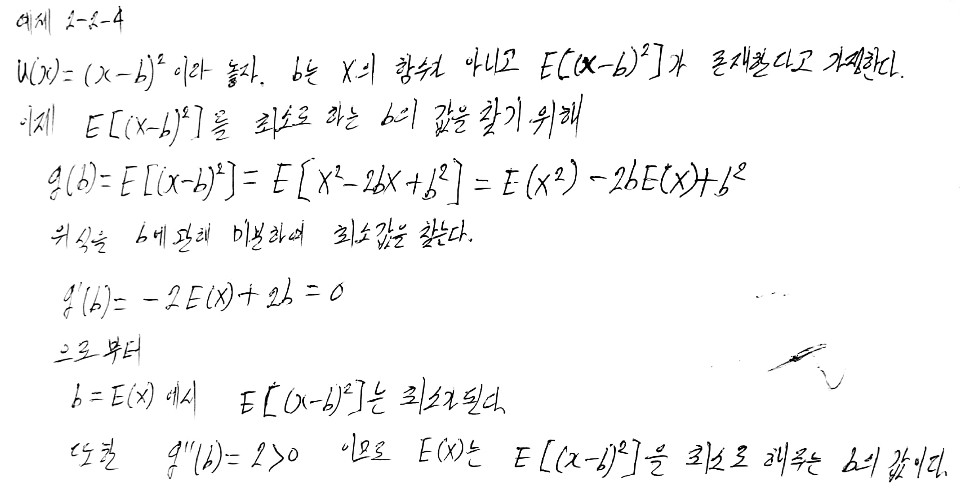 예제 2-2-4
u(x) = (x-b)² 이라 놓자. b는 X의 함수가 아니고 E[(x-b)²]가 존재한다고 가정한다.
이제 E[(x-b)²]를 최소로 하는 b의 값을 찾기 위해
g(b) = E[(x-b)²] = E[X²-2bX+b²] = E(x²) - 2bE(x) + b²
위 식을 b에 관해 미분하여 최소값을 찾는다.
g'(b) = -2E(X) + 2b = 0
으로부터
b = E(x) 에서 E[(x-b)²]는 최소가 된다.
또한 g''(b) = 2>0 이므로 E(x)는 E[(x-b)²]을 최소로 해주는 b의 값이다.